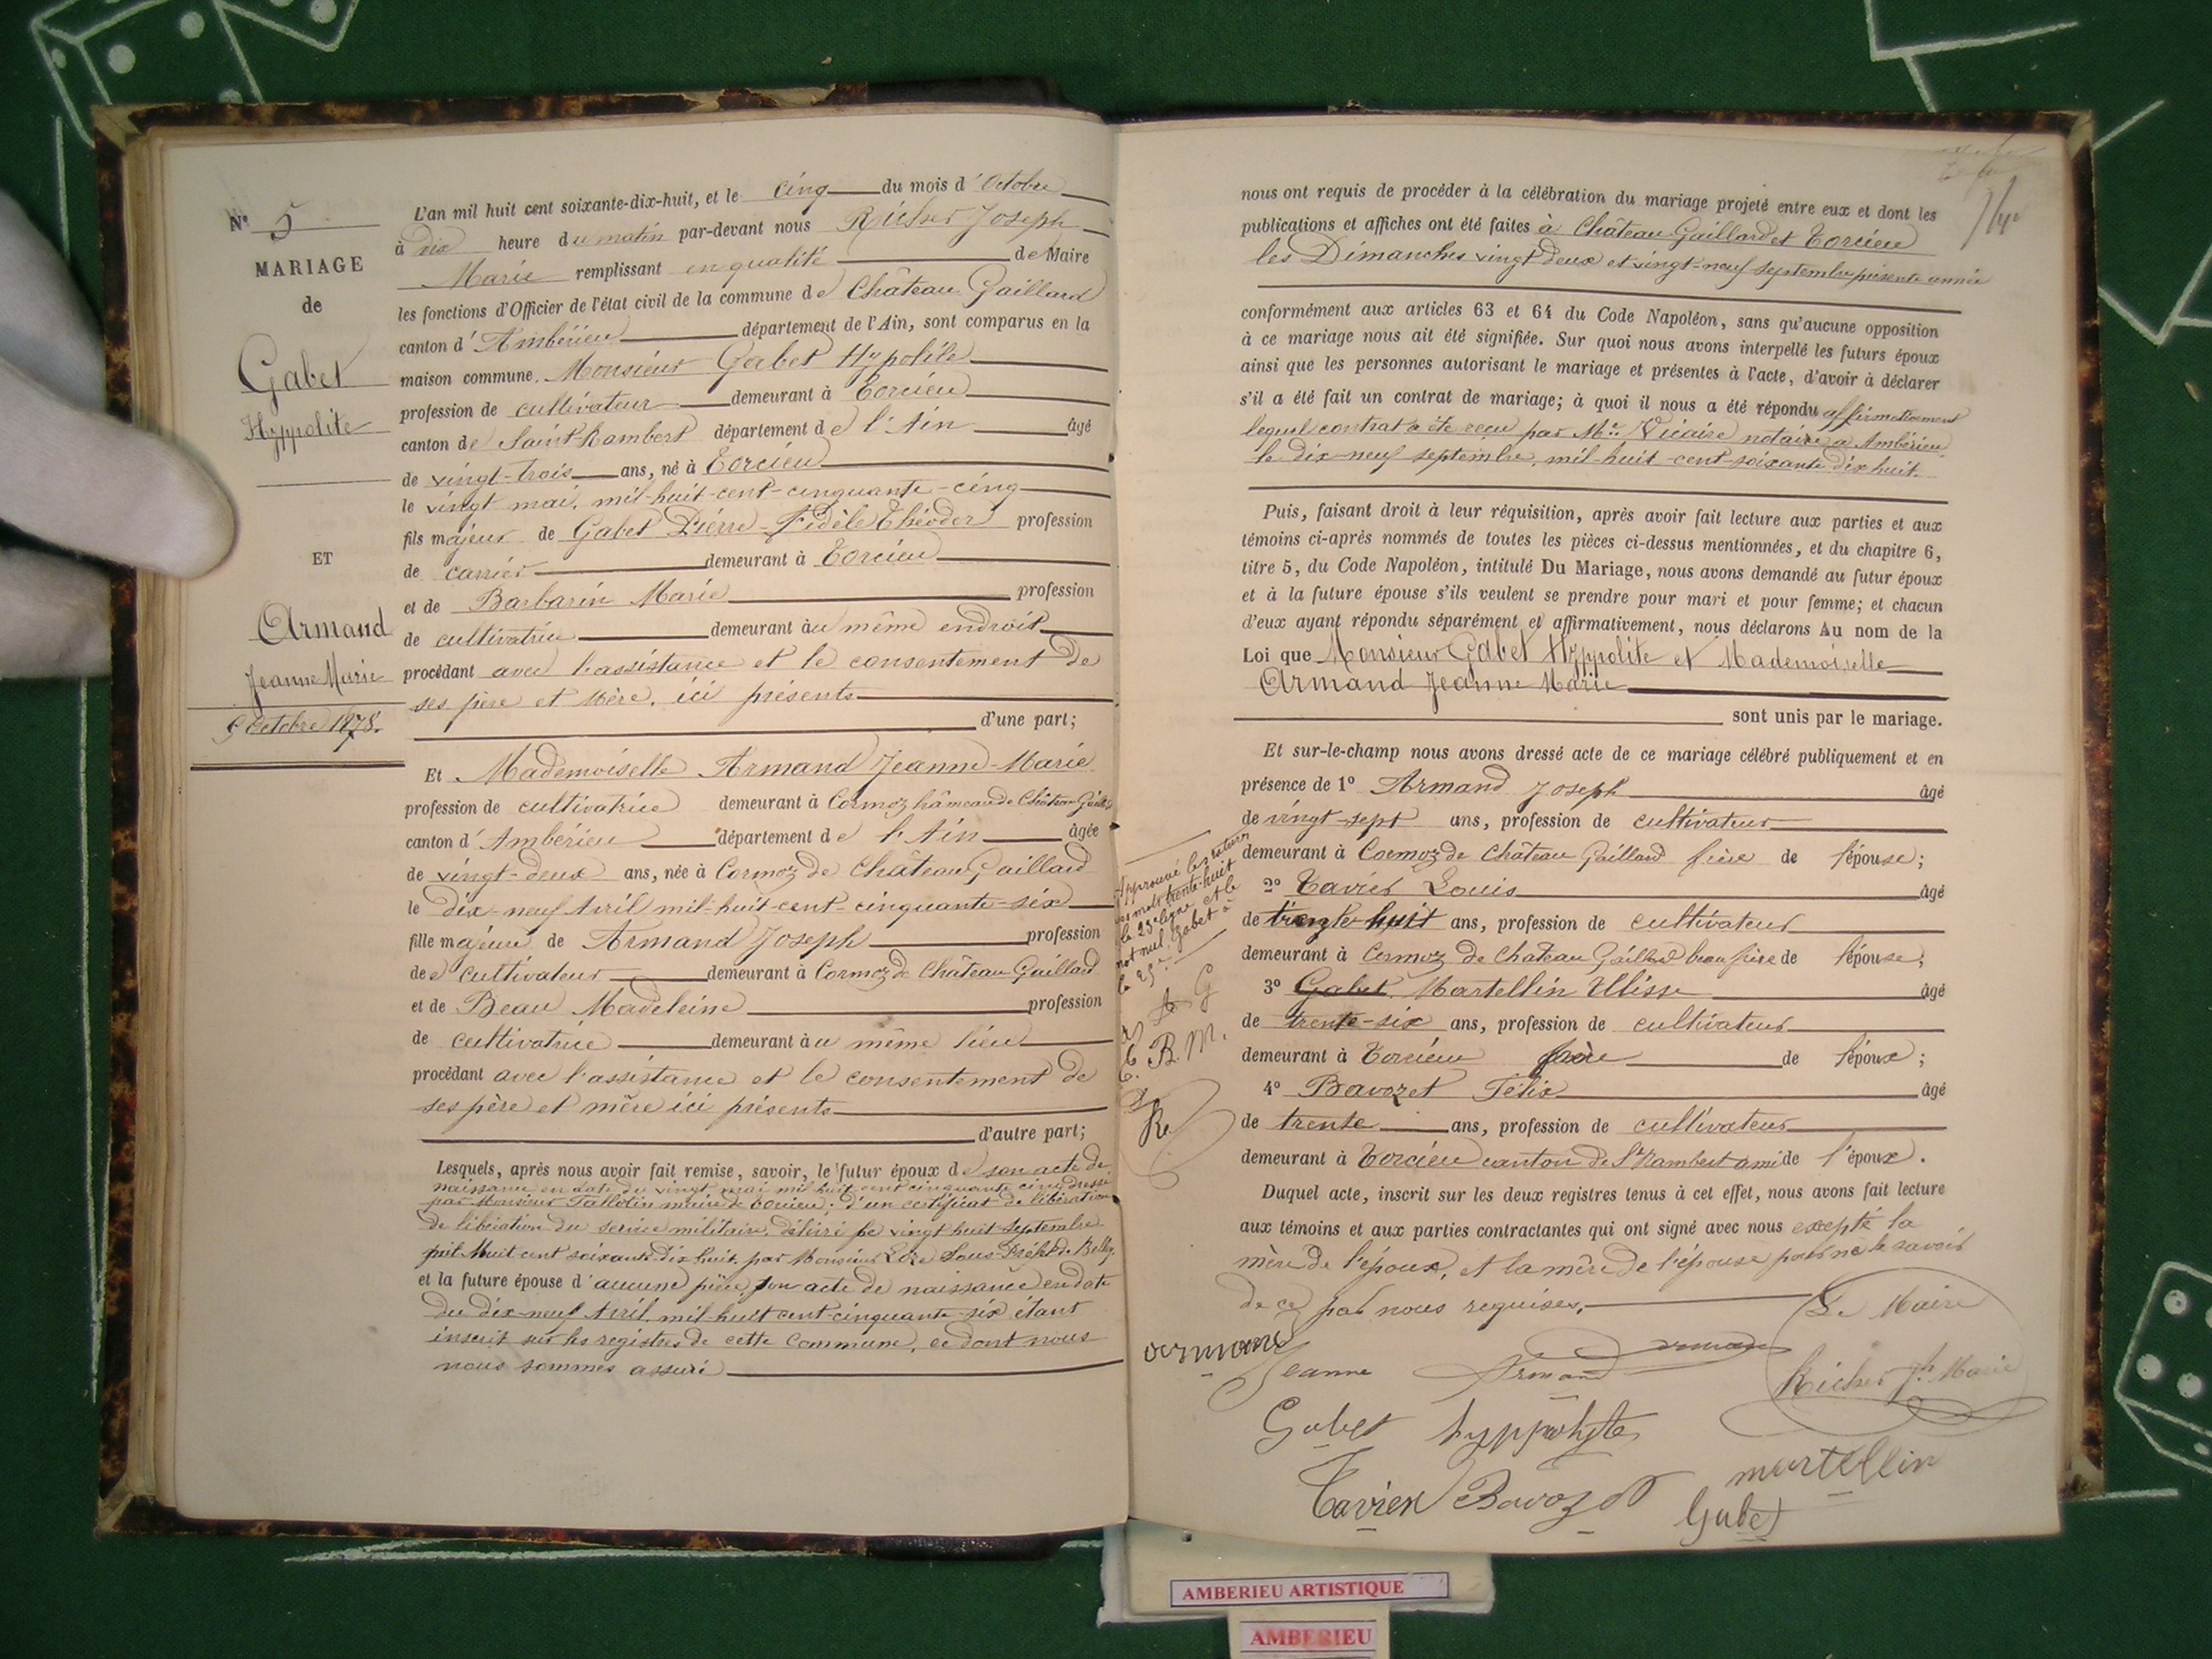 N° 5
MARIAGE
de
Gabet
Hyppolite
ET
Armand
Jeanne Marie
5 Octobre 1878.
L'an mil huit cent soixante-dix-huit, et le cinq du mois d'Octobre
à dix heure du matin par-devant nous Richer Joseph
Marie remplissant en qualité de Maire
les fonctions d'Officier de l'état civil de la commune de Château Gaillard
canton d'Ambérieu département de l'Ain, sont comparus en la
maison commune. Monsieur Gabet Hyppolite
profession de cultivateur demeurant à Torcieu
canton de Saint-Rambert département de l'Ain âgé
de vingt-trois ans, né à Torcieu
le vingt mai, mil-huit-cent-cinquante-cinq
fils majeur de Gabet Pierre-Fidèle Théodor profession
de carrier demeurant à Torcieu
et de Barbarin Marie profession
de cultivatrice demeurant àu même endroit
procédant avec l'assistance et le consentement de
ses père et mère, ici présents
d'une part;
Et Mademoiselle Armand Jeanne-Marie
profession de cultivatrice demeurant à Cormoz hâmeau de Château Gaillard
canton d'Ambérieu département de l'Ain âgée
de vingt-deux ans, née à Cormoz de Château Gaillard
le dix-neuf Avril mil-huit-cent-cinquante-six
fille majeure de Armand Joseph profession
de cultivateur demeurant à Cormoz de Château-Gaillard
et de Beau Madeleine profession
de cultivatrice demeurant àu même lieu
procédant avec l'assistance et le consentement de
ses père et mère ici présents
d'autre part;
Lesquels, après nous avoir fait remise, savoir, le futur époux de son acte de
naissance en date du vingt mai mil huit cent cinquante cinq dressé
par Monsieur Tallotin maire de Torcieu; d'un certificat de libération
de libération du service militaire, délivré le vingt huit Septembre
mil huit cent soixante-dix huit par Monsieur Sous-Préfet de Belley
et la future épouse d'aucune pièce, son acte de naissance en date
du dix-neuf Avril, mil-huit cent-cinquante-six étant
inscrit sur les registres de cette Commune, ce dont nous
nous sommes assuré
nous ont requis de procéder à la célébration du mariage projeté entre eux et dont les
publications et affiches ont été faites à Château-Gaillard et Torcieu
les Dimanches vingt deux et vingt-neuf septembre présente année
conformément aux articles 63 et 64 du Code Napoléon, sans qu'aucune opposition
à ce mariage nous ait été signifiée. Sur quoi nous avons interpellé les futurs époux
ainsi que les personnes autorisant le mariage et présentes à l'acte, d'avoir à déclarer
s'il a été fait un contrat de mariage; à quoi il nous a été répondu affirmativement
lequel contrat a été reçu par Me Vicaire notaire à Ambérieu
le dix-neuf septembre, mil-huit-cent-soixante dix huit.
Puis, faisant droit à leur réquisition, après avoir fait lecture aux parties et aux
témoins ci-après nommés de toutes les pièces ci-dessus mentionnées, et du chapitre 6,
titre 5, du Code Napoléon, intitulé Du Mariage, nous avons demandé au futur époux
et à la future épouse s'ils veulent se prendre pour mari et pour femme; et chacun
d'eux ayant répondu séparément et affirmativement, nous déclarons Au nom de la
Loi que Monsieur Gabet Hyppolite et Mademoiselle
Armand Jeanne Marie
sont unis par le mariage.
Et sur-le-champ nous avons dressé acte de ce mariage célébré publiquement et en
présence de 1° Armand Joseph âgé
de vingt-sept ans, profession de cultivateur
demeurant à Cormoz de Château Gaillard frère de l'épouse;
2° Tavier Louis âgé
de trente-huit ans, profession de cultivateur
demeurant à Cormoz de Château Gaillard beau frère de l'épouse;
3° Gabet Martellin Ulisse âgé
de trente-six ans, profession de cultivateur
demeurant à Torcieu frère de l'époux;
4° Bavozet Félix âgé
de trente ans, profession de cultivateur
demeurant à Torcieu canton de St Rambert ami de l'époux.
Duquel acte, inscrit sur les deux registres tenus à cet effet, nous avons fait lecture
aux témoins et aux parties contractantes qui ont signé avec nous excepté la
mère de l'époux, et la mère de l'épouse pour ne le savoir
de ce par nous requises.
Approuvé les
mots trente-huit
le 23e ligne et le
mot nul Gabet à
la 25e
A G
B. M.
Re
Le Maire
armand
Jeanne Armand
Richer Jh Marie
Gabet hyppolyte
martellin
Tavier Bavozet
Gabet
AMBERIEU ARTISTIQUE
AMBERIEU